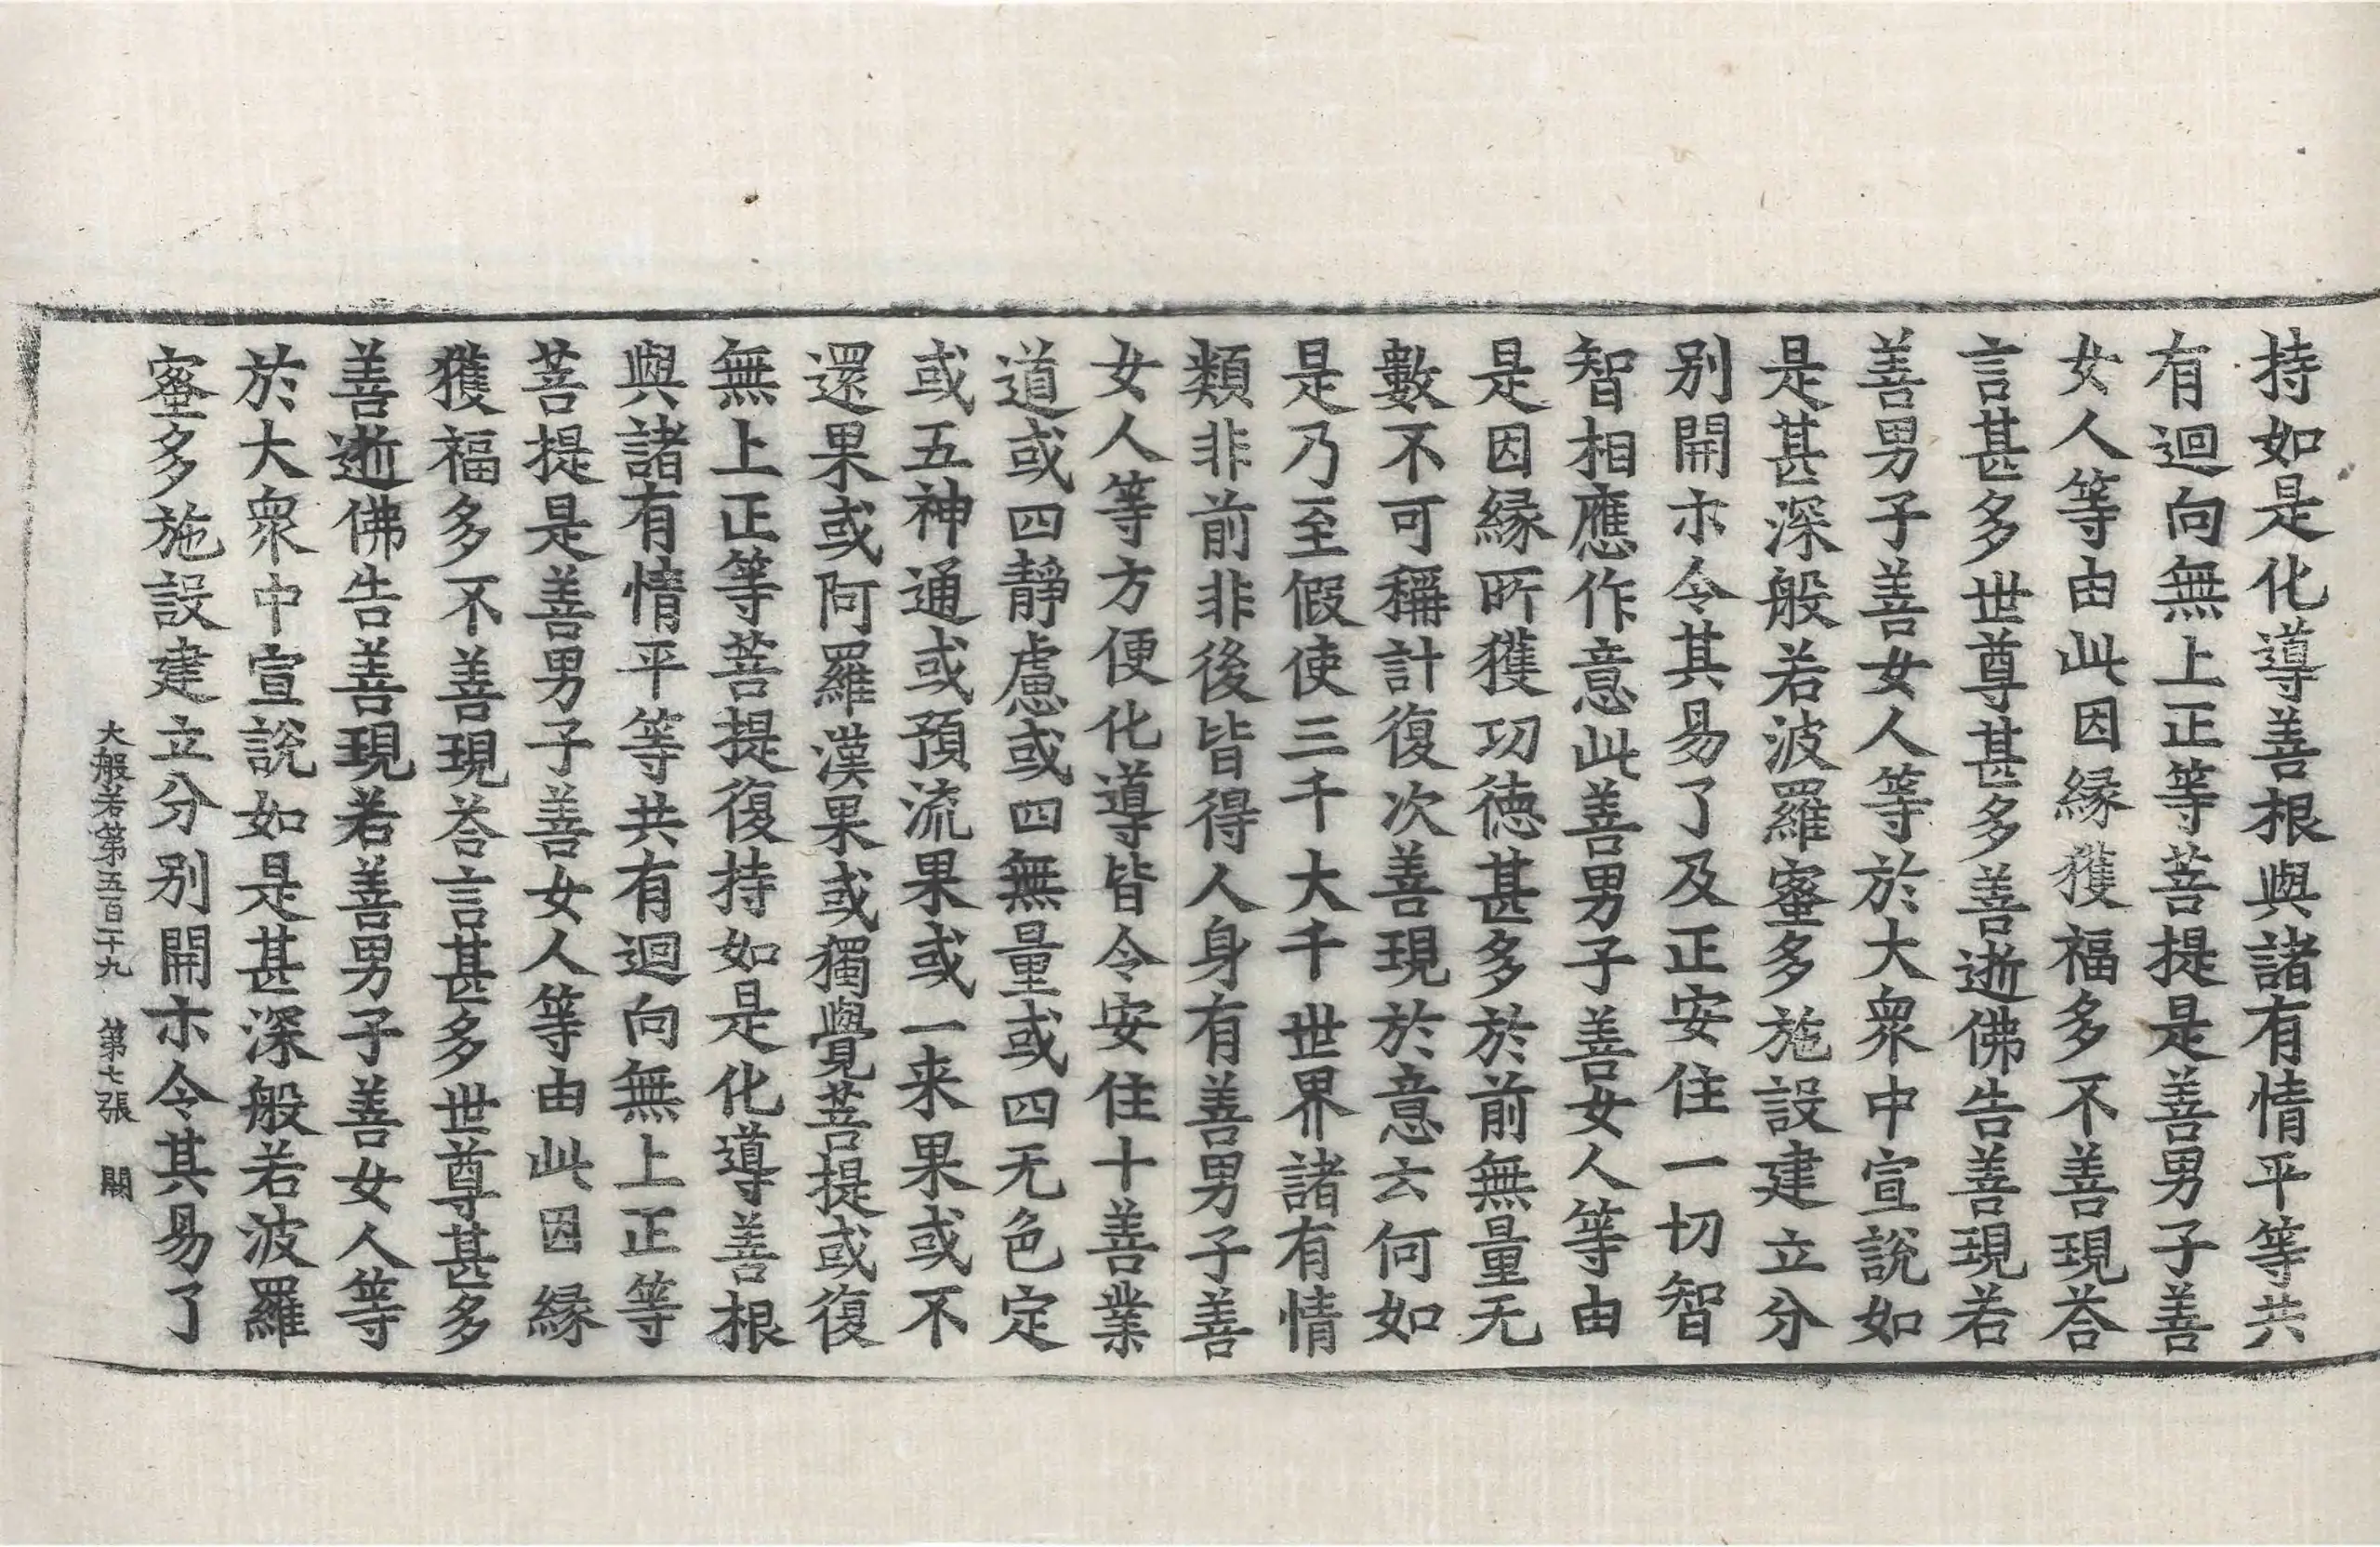 持如是化導善根與諸有情平等共
有迴向無上正等菩提是善男子善
女人等由此因縁獲福多不善現荅
言甚多世尊甚多善逝佛告善現若
善男子善女人等於大衆中宣説如
是甚深般若波羅蜜多施設建立分
别開示令其易了及正安住一切智
智相應作意此善男子善女人等由
是因縁所獲功德甚多於前無量无
數不可稱計復次善現於意云何如
是乃至假使三千大千世界諸有情
類非前非後皆得人身有善男子善
女人等方便化導皆令安住十善業
道或四靜慮或四無量或四无色定
或五神通或預流果或一来果或不
還果或阿羅漢果或獨覺菩提或復
無上正等菩提復持如是化導善根
與諸有情平等共有迴向無上正等
菩提是善男子善女人等由此因縁
獲福多不善現荅言甚多世尊甚多
善逝佛告善現若善男子善女人等
於大衆中宣説如是甚深般若波羅
蜜多施設建立分别開示令其易了
大般若第五百二十九 第七張 闕